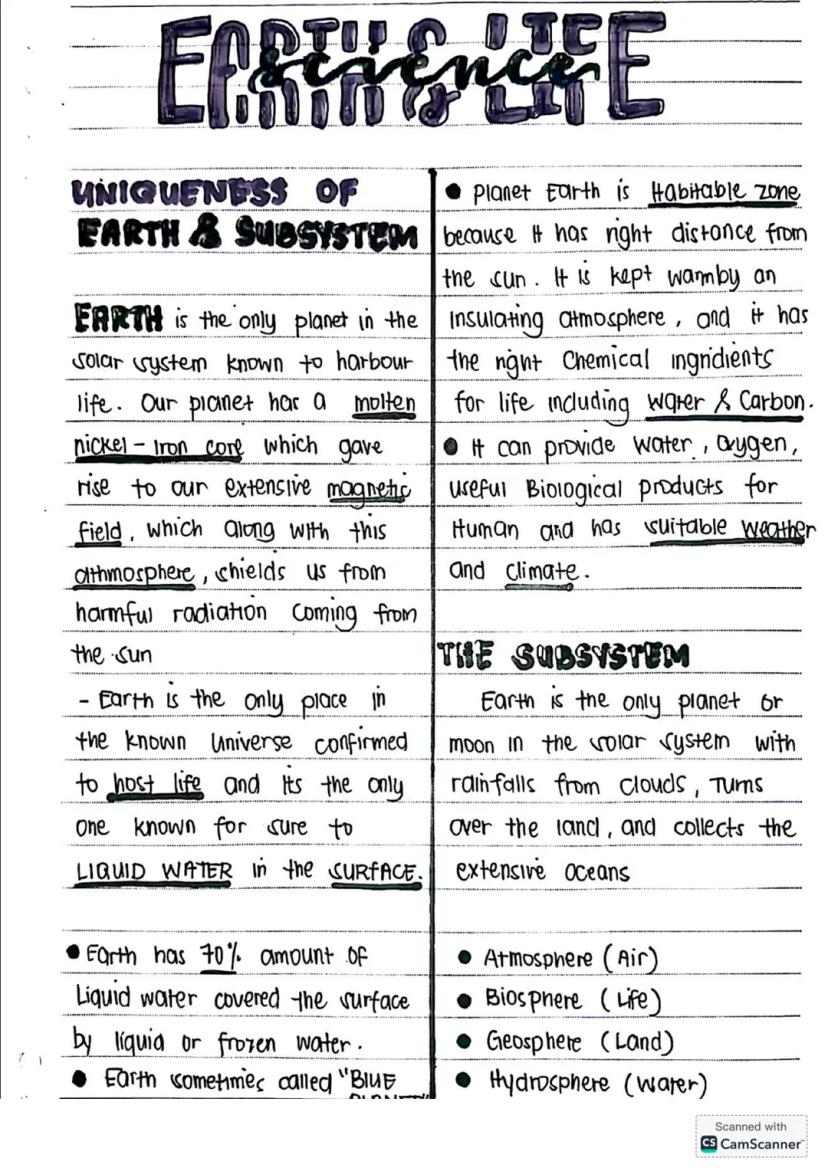 EARTH & LIFE
science
UNIQUENESS OF
EARTH & SUBSYSTEM
EARTH is the only planet in the
solar system known to harbour
life. Our planet has a molten
nickel - Iron core which gave
rise to our extensive magnetic
field, which along with this
athmosphere, shields us from
harmful radiation coming from
the sun
- Earth is the only place in
the known Universe confirmed
to host life and its the only
one known for sure to
LIQUID WATER in the SURFACE.
● Earth has 70% amount of
Liquid water covered the surface
by liquid or frozen water.
● Earth sometimes called "BlUE
PLANET"
● Planet Earth is Habitable zone
because It has right distance from
the sun. It is kept warmby an
Insulating atmosphere, and it has
the right Chemical ingridients
for life including water & Carbon.
● It can provide Water, Oxygen,
useful Biological products for
Human and has suitable weather
and climate.
THE SUBSYSTEM
Earth is the only planet or
moon in the solar system with
rainfalls from clouds, Turns
over the land, and collects the
extensive oceans
● Atmosphere (Air)
● Biosphere (Life)
● Geosphere (Land)
● Hydrosphere (Water)
Scanned with
CS CamScanner